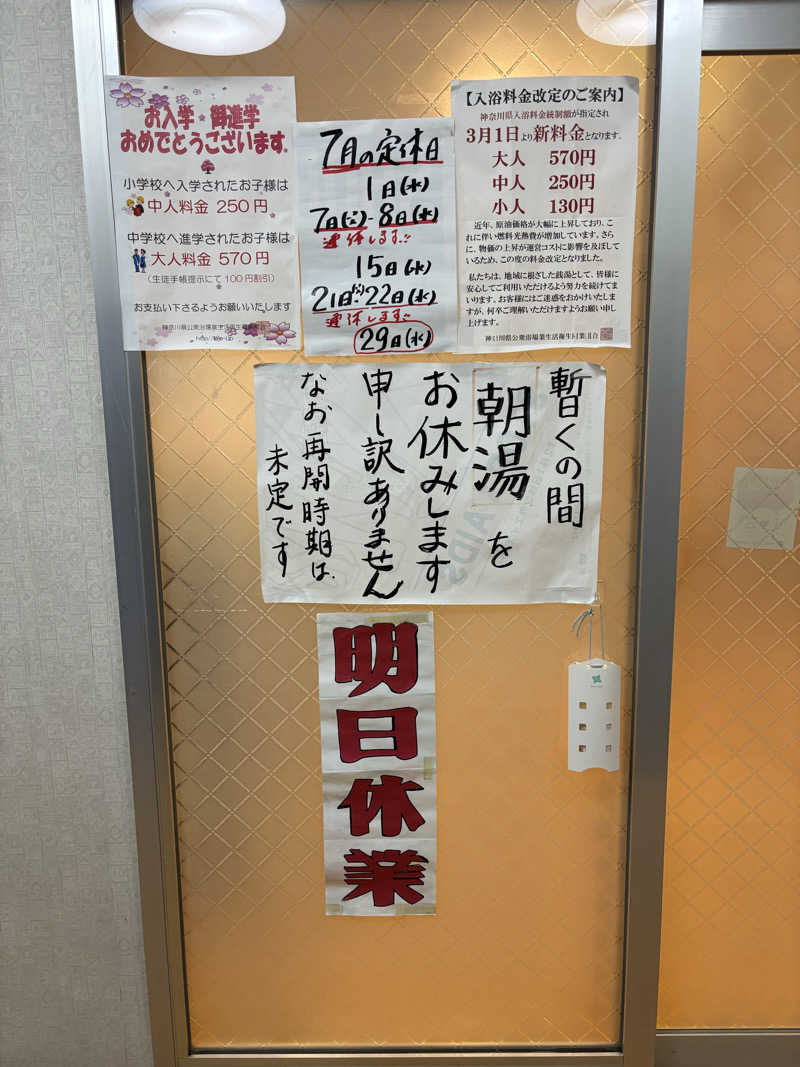 お入学・御進学
おめでとうございます。
小学校へ入学されたお子様は
中人料金 250円
中学校へ進学されたお子様は
大人料金 570円
(生徒手帳提示にて100円割引)
お支払い下さるようお願いいたします
神奈川県公衆浴場業生活衛生同業組合
7月の定休日
1日(水)
7日(火)-8日(水)
連休します!!
15日(水)
21日(火)-22日(水)
連休します!!
29日(水)
【入浴料金改定のご案内】
神奈川県入浴料金統制額が指定され
3月1日より新料金となります。
大人 570円
中人 250円
小人 130円
近年、原油価格が大幅に上昇しており、これ
に伴い燃料光熱費が増加しています。さら
に、物価の上昇が運営コストに影響を及ぼして
いるため、この度の料金改定となりました。
私たちは、地域に根ざした銭湯として、皆様に
安心してご利用いただけるよう努力を続けてま
いります。お客様にはご迷惑をおかけいたしま
すが、何卒ご理解いただけますようお願い申し
上げます。
神奈川県公衆浴場業生活衛生同業組合
暫くの間
朝湯を
お休みします
申し訳ありません
なお再開時期は
未定です
明日休業